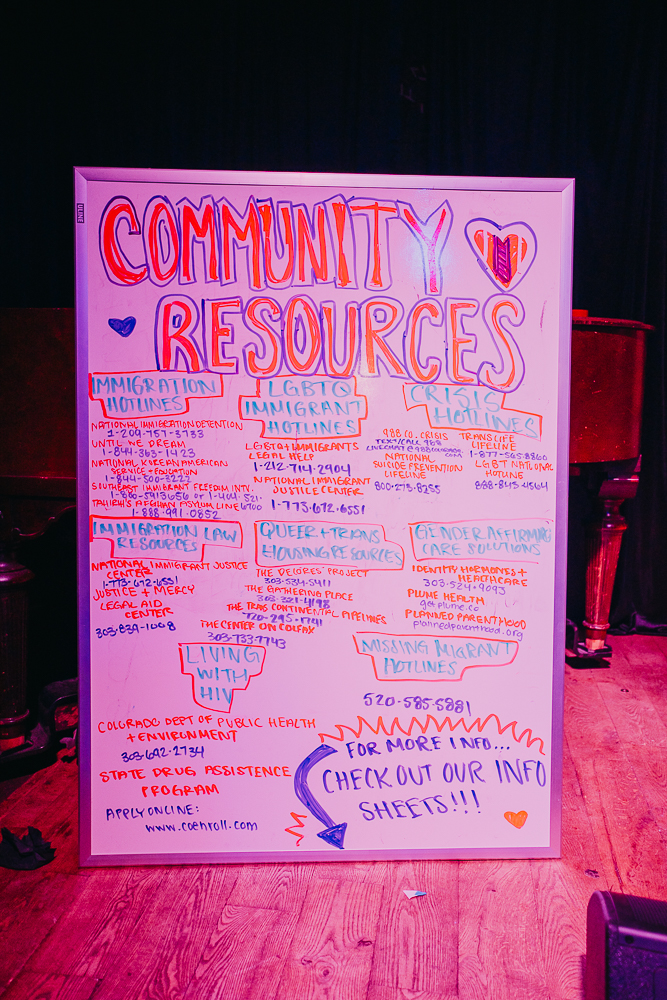 COMMUNITY
RESOURCES
IMMIGRATION
HOTLINES
NATIONAL IMMIGRATION DETENTION
1-209-757-3733
UNTIL WE DREAM
1-844-363-1423
NATIONAL KOREAN AMERICAN
SERVICE + EDUCATION
1-844-500-3222
SOUTHEAST IMMIGRANT FREEDOM INTV.
TAHIRIH'S AFGHAN ASYLUM LINE
1-888-991-0852
LGBTQ
IMMIGRANT
HOTLINES
LGBTQ+ IMMIGRANTS
LEGAL HELP
1-212-714-2904
NATIONAL IMMIGRANT
JUSTICE CENTER
1-773-672-6551
CRISIS
HOTLINES
988 CO. CRISIS
TEXT/CALL 988
NATIONAL
SUICIDE PREVENTION
LIFELINE
800-273-8255
TRANS LIFE
LIFELINE
1-877-565-8860
LGBT NATIONAL
HOTLINE
888-843-4564
IMMIGRATION LAW
RESOURCES
NATIONAL IMMIGRANT JUSTICE
CENTER
1-773-672-6551
JUSTICE + MERCY
LEGAL AID
CENTER
303-839-1008
QUEER + TRANS
HOUSING RESOURCES
THE DELORES' PROJECT
303-534-5411
THE GATHERING PLACE
303-321-4198
THE TRANS CONTINENTAL PIPELINES
THE CENTER ON COLFAX
303-733-7743
GENDER AFFIRMING
CARE SOLUTIONS
IDENTITY HORMONES +
HEALTHCARE
303-524-9093
PLUME HEALTH
getplume.co
PLANNED PARENTHOOD
plannedparenthood.org
LIVING
WITH
HIV
COLORADO DEPT OF PUBLIC HEALTH
+ ENVIRONMENT
303-692-2734
STATE DRUG ASSISTENCE
PROGRAM
APPLY ONLINE:
www.coenroll.com
MISSING MIGRANT
HOTLINES
520-585-5881
FOR MORE INFO...
CHECK OUT OUR INFO
SHEETS!!!